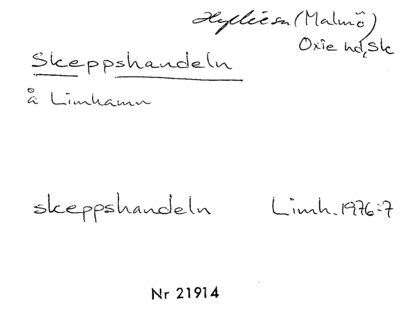 Hyllie sn (Malmö)
Oxie hd, Sk
Skeppshandeln
å Limhamn
skeppshandeln Limh. 1976:7
Nr 21914